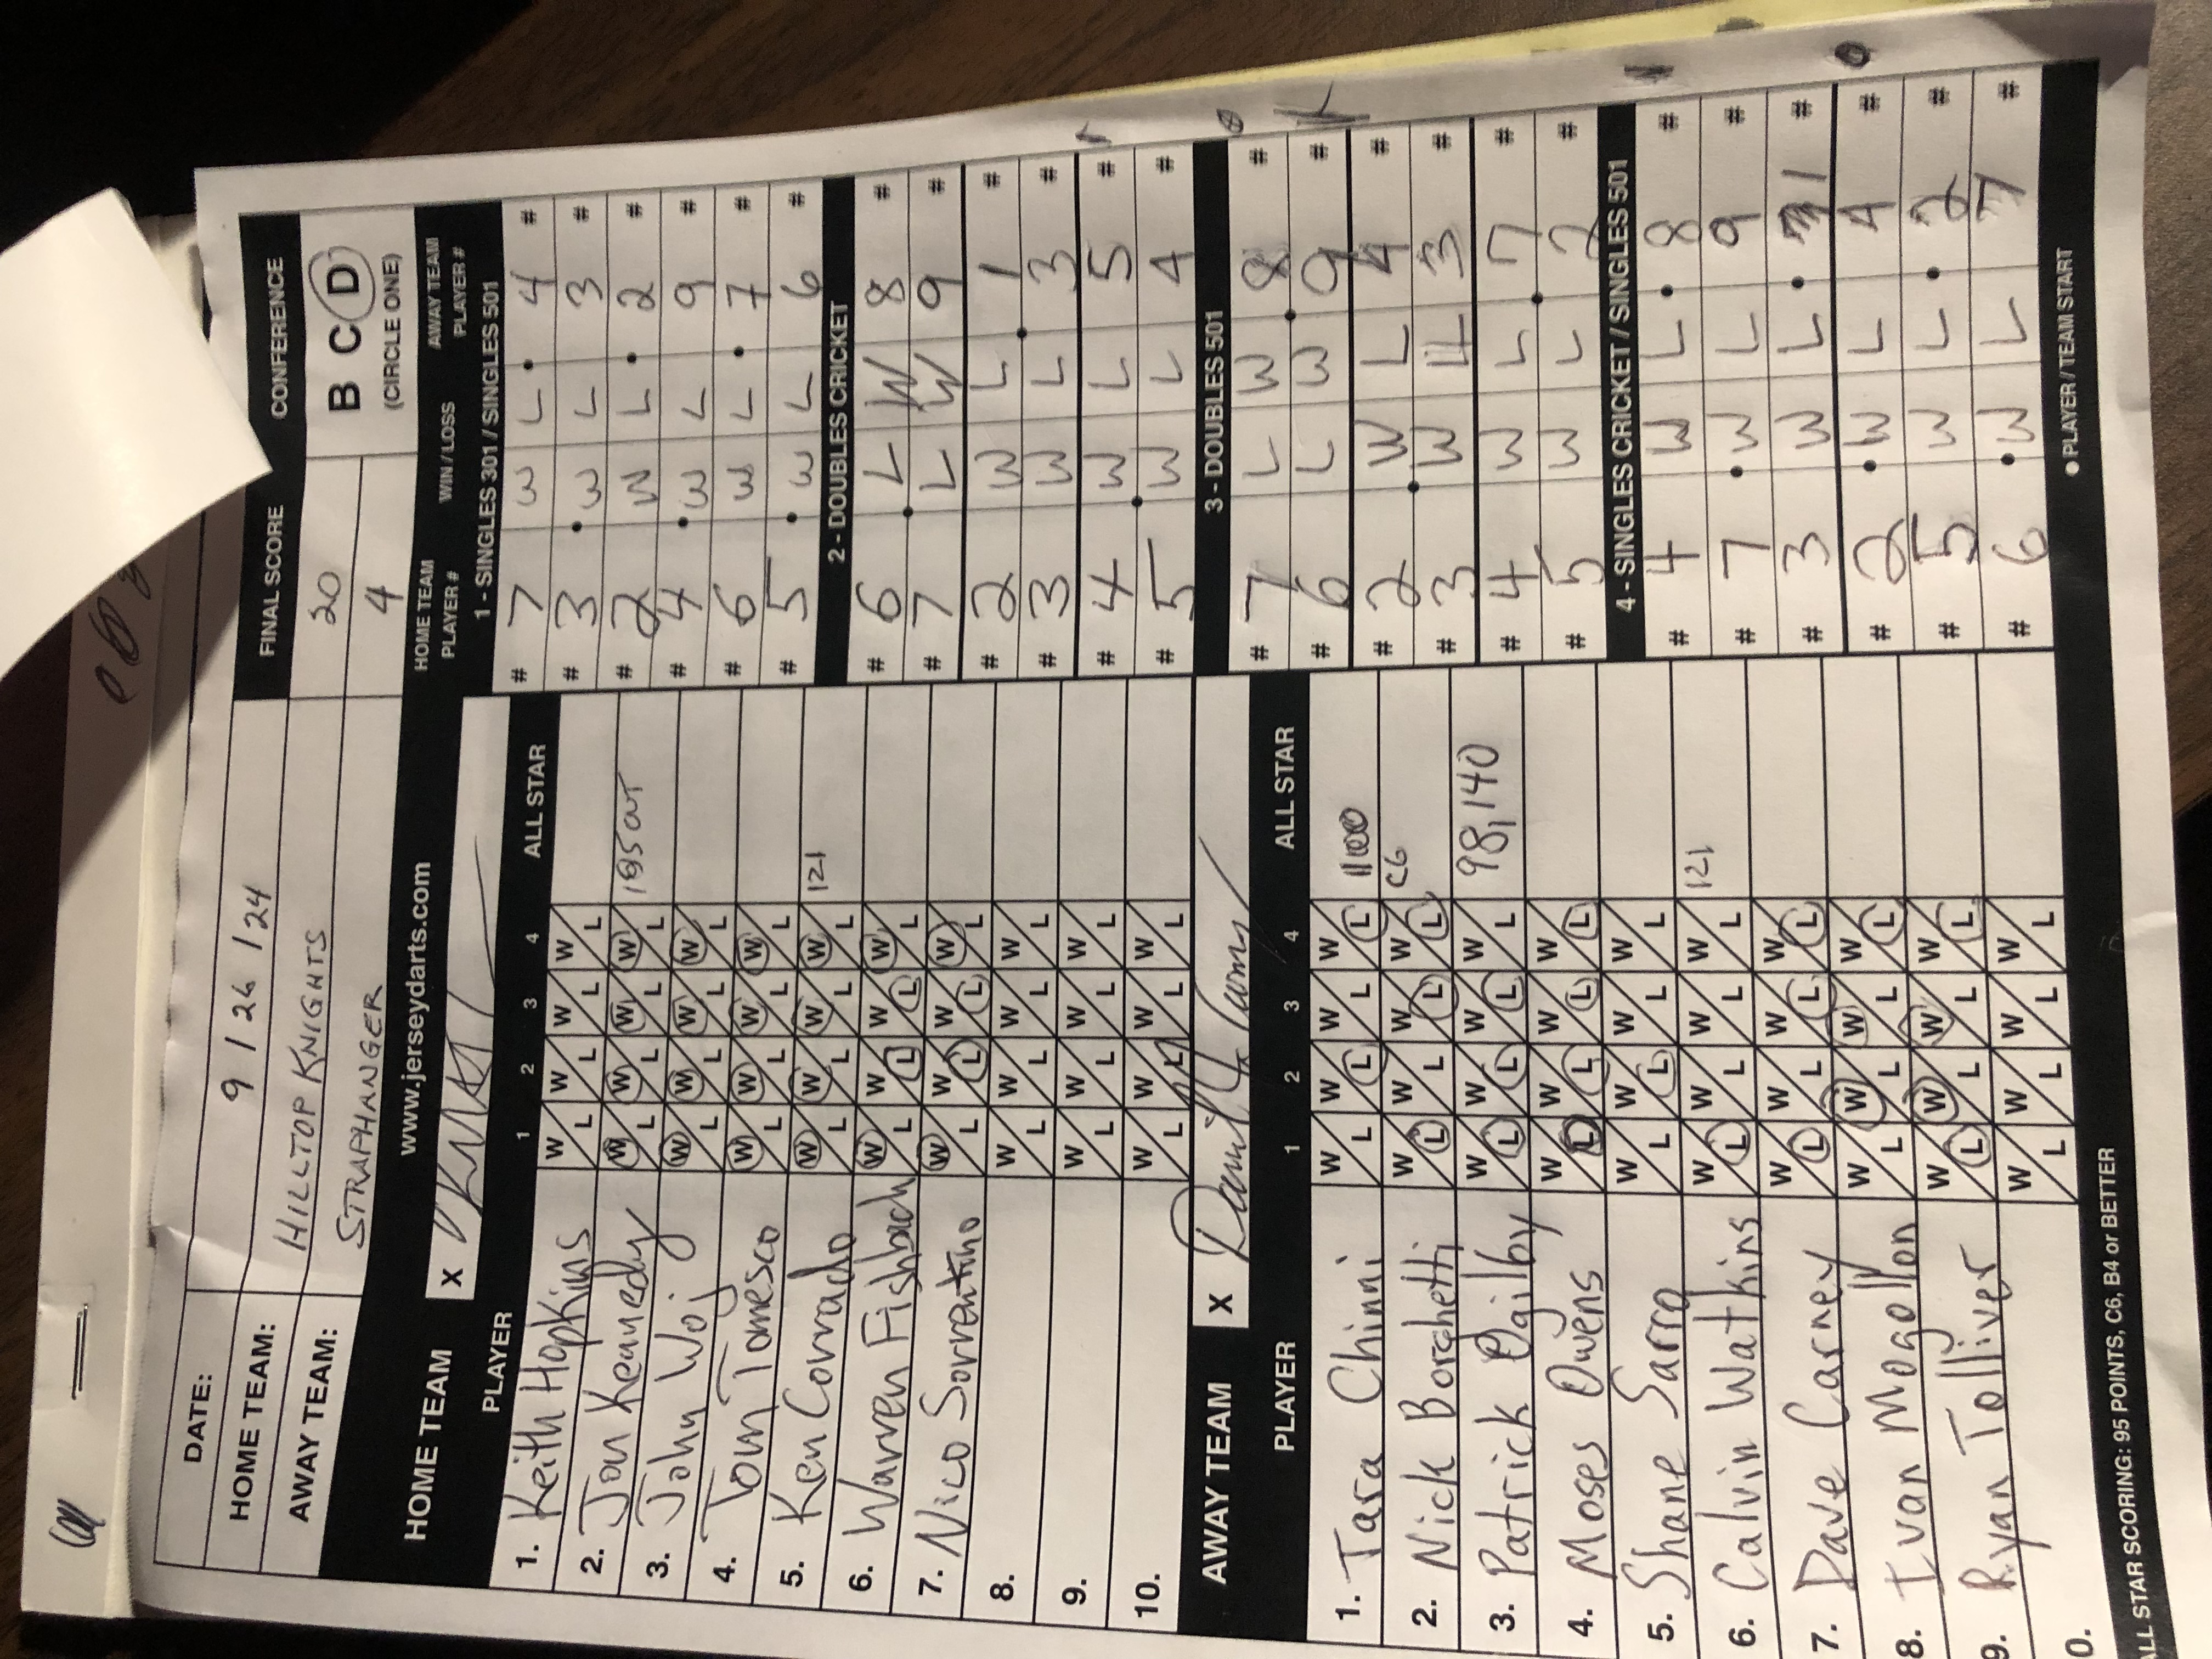 DATE: 9 / 26 / 24
HOME TEAM: HILLTOP KNIGHTS
AWAY TEAM: STRAPHANGER
FINAL SCORE
20
4
CONFERENCE
B C D
(CIRCLE ONE)
HOME TEAM www.jerseydarts.com
X
PLAYER 1 2 3 4 ALL STAR
1. Keith Hopkins W L W L W L W L
2. Jon Kennedy W L W L W L W L
3. John Woj W L W L W L W L
4. Tom Tomesco W L W L W L W L
5. Ken Corrado W L W L W L W L 121
6. Warren Fishbach W L W L W L W L
7. Nico Sorrentino W L W L W L W L
8. W L W L W L W L
9. W L W L W L W L
10. W L W L W L W L
AWAY TEAM X
PLAYER 1 2 3 4 ALL STAR
1. Tara Chinni W L W L W L W L
2. Nick Borchetti W L W L W L W L C6
3. Patrick Ogilby W L W L W L W L 98,140
4. Moses Owens W L W L W L W L
5. Shane Sarra W L W L W L W L
6. Calvin Watkins W L W L W L W L 121
7. Dave Carney W L W L W L W L
8. Ivan Mogollon W L W L W L W L
9. Ryan Tolliver W L W L W L W L
0.
ALL STAR SCORING: 95 POINTS, C6, B4 or BETTER
HOME TEAM PLAYER # WIN / LOSS AWAY TEAM PLAYER #
1 - SINGLES 301 / SINGLES 501
# 7 W L 4 #
# 3 W L 3 #
# 2 W L 2 #
# 4 W L 9 #
# 6 W L 7 #
# 5 W L 6 #
2 - DOUBLES CRICKET
# 6 L W 8 #
# 7 L W 9 #
# 2 W L 1 #
# 3 W L 3 #
# 4 W L 5 #
# 5 W L 4 #
3 - DOUBLES 501
# 7 L W 8 #
# 6 L W 9 #
# 2 W L 4 #
# 3 W L 3 #
# 4 W L 7 #
# 5 W L 2 #
4 - SINGLES CRICKET / SINGLES 501
# 4 W L 8 #
# 7 W L 9 #
# 3 W L 1 #
# 2 W L 4 #
# 5 W L 2 #
# 6 W L 7 #
● PLAYER / TEAM START